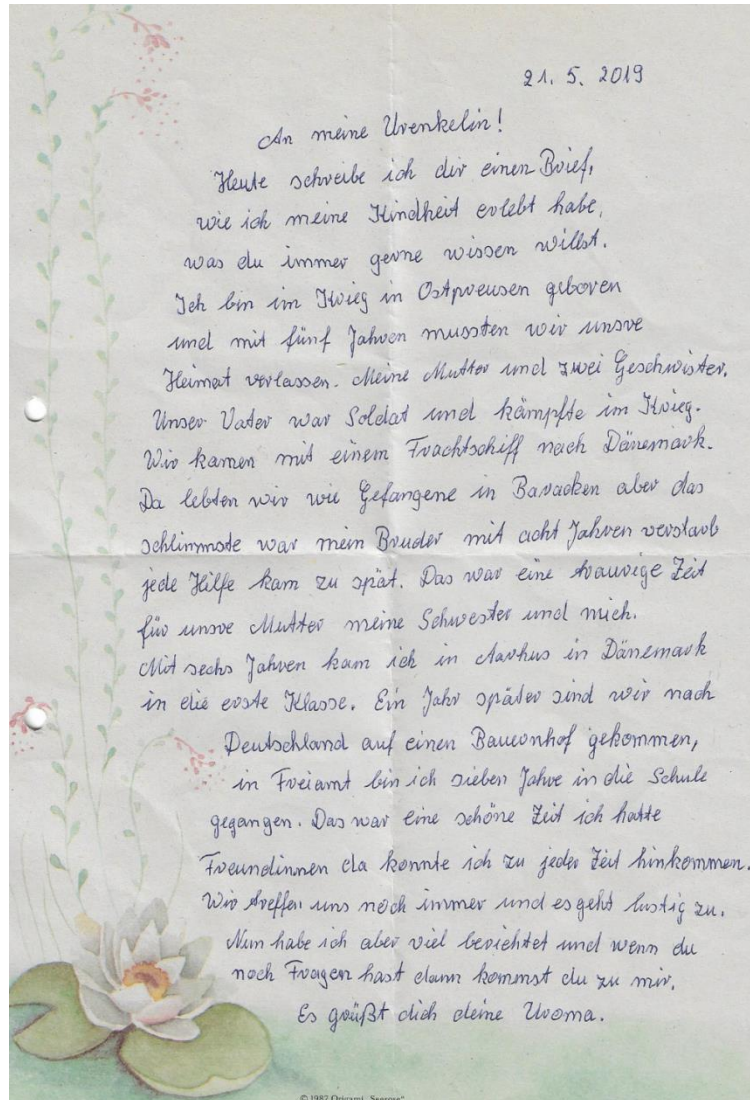 21. 5. 2019
An meine Urenkelin!
Heute schreibe ich dir einen Brief,
wie ich meine Kindheit erlebt habe,
was du immer gerne wissen willst.
Ich bin im Krieg in Ostpreusen geboren
und mit fünf Jahren mussten wir unsre
Heimat verlassen. Meine Mutter und zwei Geschwister.
Unser Vater war Soldat und kämpfte im Krieg.
Wir kamen mit einem Frachtschiff nach Dänemark.
Da lebten wir wie Gefangene in Baracken aber das
schlimmste war mein Bruder mit acht Jahren verstarb
jede Hilfe kam zu spät. Das war eine traurige Zeit
für unsre Mutter meine Schwester und mich.
Mit sechs Jahren kam ich in Aarhus in Dänemark
in die erste Klasse. Ein Jahr später sind wir nach
Deutschland auf einen Bauernhof gekommen,
in Freiamt bin ich sieben Jahre in die Schule
gegangen. Das war eine schöne Zeit ich hatte
Freundinnen da konnte ich zu jeder Zeit hinkommen.
Wir treffen uns noch immer und es geht lustig zu.
Nun habe ich aber viel berichtet und wenn du
noch Fragen hast dann kommst du zu mir.
Es grüßt dich deine Uroma.
© 1987 Origami „Seerose“